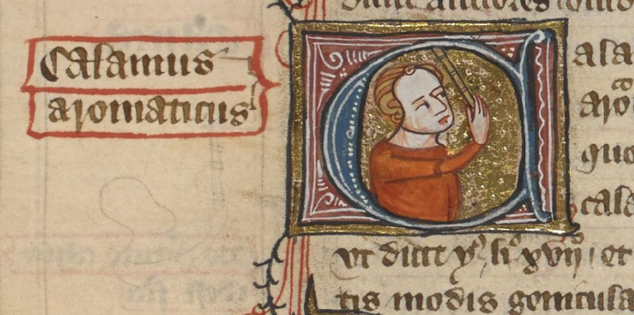 Calamus
aromaticus
C ala
aro
que
cala
vt dicit ysˀ liˀ xvijˀ et
tis modis genicula